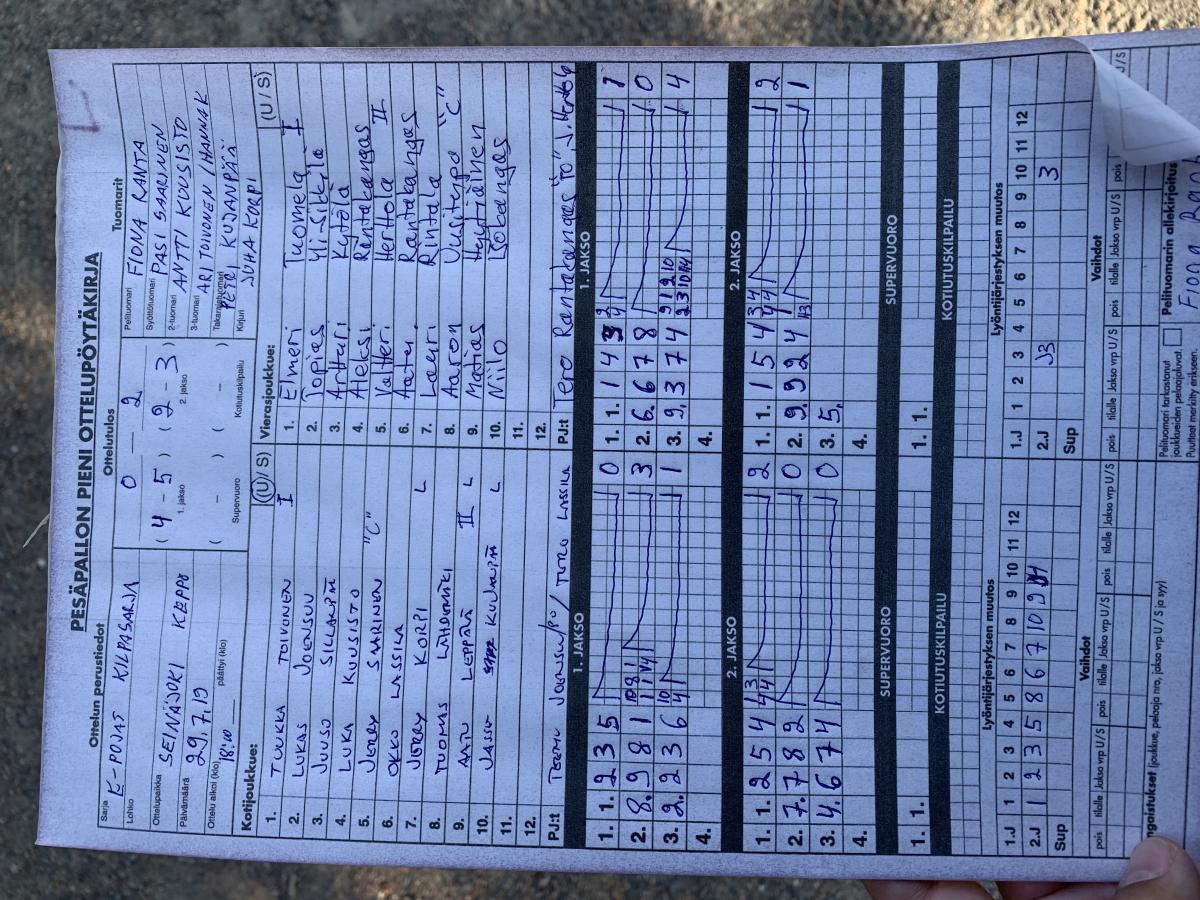 PESÄPALLON PIENI OTTELUPÖYTÄKIRJA
Ottelun perustiedot
Sarja
E-POJAT KILPASARJA
Lohko
Ottelupaikka
SEINÄJOKI
Päivämäärä
29.7.19
Ottelu alkoi (klo)
18:00
päättyi (klo)
Ottelutulos
0 - 2
( 4 - 5 ) ( 2 - 3 )
1. jakso 2. jakso
( - ) ( - )
Supervuoro Kotiutuskilpailu
Tuomarit
Pelituomari FIONA RANTA
Syöttötuomari PASI SAARINEN
2-tuomari ANTTI KOUSISTO
3-tuomari ARI TOIVONEN / HANNAK
Takarajatuomari PETRI KUJANPÄÄ
Kirjuri JUHA KORPI
Kotijoukkue: (U / S)
1. TUUKKA TOIVONEN I
2. LUKAS JOENSUU
3. JUUSO
4. LUKA KUUSISTO
5. JEREY SAARINEN "C"
6. OKKO LASSILA
7. JERRY KORPI L
8. TUOMAS LÄHDEMÄKI
9. AATU LEPPÄLÄ II L
10. KUJANPÄÄ L
11.
12.
PJ:t TEEMU JOENSUU / TIMO LASSILA
Vierasjoukkue: (U / S)
1. Elmeri Tuomela I
2. Topias Yli-Sikkilä
3. Arttari Kytölä
4. Aleksi Rantakangas
5. Valtteri Herttola II
6. Aatu Rantakangas
7. Lauri Rintala
8. Aaron Uusitupa "C"
9. Matias Hautiainen
10. Niilo Isokangas
11.
12.
PJ:t Tero Rantakangas "TO" J. Herttola
1. JAKSO
1. 1. 2 3 5 0
2. 8. 9 8 1 10 8 1 3
3. 2. 2 3 6 10 4 1
4.
1. JAKSO
1. 1. 1 4 3 1
2. 6. 6 7 8 0
3. 9. 3 7 4 4
4.
2. JAKSO
1. 1. 2 5 4 2
2. 7. 7 8 2 0
3. 4. 6 7 4 0
4.
2. JAKSO
1. 1. 1 5 4 3 4 2
2. 9. 9 2 4 1
3. 5.
4.
SUPERVUORO
1. 1.
SUPERVUORO
1. 1.
KOTIUTUSKILPAILU
KOTIUTUSKILPAILU
Lyöntijärjestyksen muutos
1 2 3 4 5 6 7 8 9 10 11 12
1.J
2.J 1 2 3 5 8 6 7 10 9 4
Sup
Lyöntijärjestyksen muutos
1 2 3 4 5 6 7 8 9 10 11 12
1.J
2.J J3 3
Sup
Vaihdot
pois tilalle Jakso vrp U / S pois tilalle Jakso vrp U / S pois tilalle Jakso vrp U / S
Vaihdot
pois tilalle Jakso vrp U / S pois tilalle Jakso vrp U / S pois tilalle Jakso vrp U / S
ngaistukset (joukkue, pelaaja nro, jakso vrp U / S ja syy)
Pelituomari tarkastanut
joukkueiden pelaajaluvat.
Puutteet merkitty erikseen.
Pelituomarin allekirjoitus
Fiona Ranta